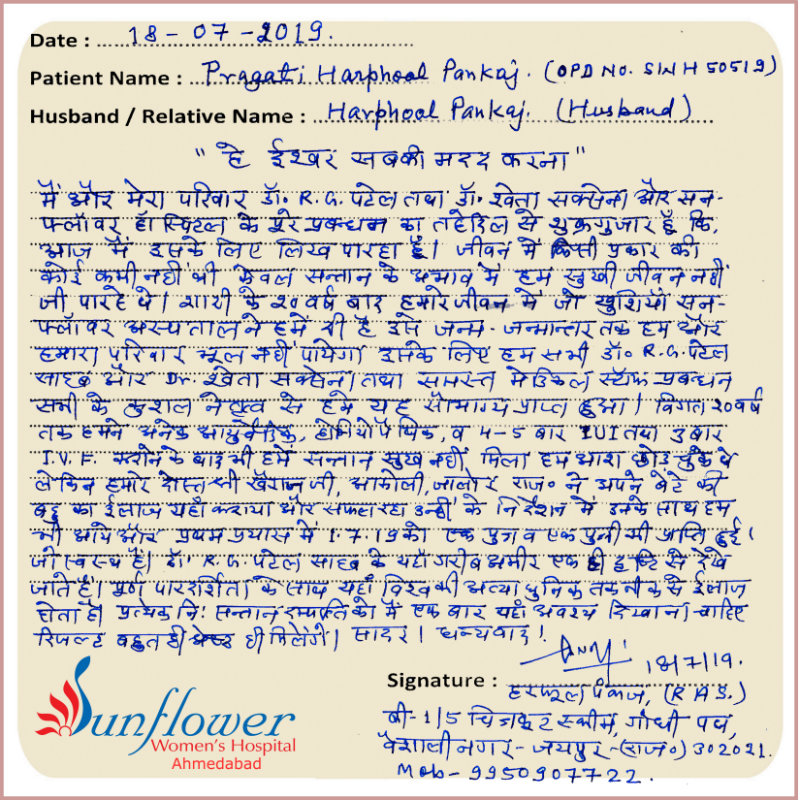 Date : 18-07-2019.
Patient Name : Pragati Harphool Pankaj. (OPD NO. SINH 50519)
Husband / Relative Name : Harphool Pankaj. (Husband)
"हे ईश्वर सबकी मदद करना"
मैं और मेरा परिवार डॉ॰ R.G. पटेल तथा डॉ॰ श्वेता सक्सेना और सन-
फ्लॉवर हॉस्पिटल के पूरे प्रबन्धन का तहेदिल से शुक्रगुजार हूँ कि,
आज मैं इसके लिए लिख पा रहा हूँ। जीवन में किसी प्रकार की
कोई कमी नहीं थी केवल सन्तान के अभाव में हम सुखी जीवन नहीं
जी पा रहे थे। शादी के 20 वर्ष बाद हमारे जीवन में जो खुशियाँ सन-
फ्लॉवर अस्पताल ने हमें दी है उसे जन्म-जन्मान्तर तक हम और
हमारा परिवार भूल नहीं पायेगा इसके लिए हम सभी डॉ॰ R.G. पटेल
साहब और Dr. श्वेता सक्सेना तथा समस्त मेडिकल स्टाफ प्रबन्धन
सभी के कुशल नेतृत्व से हमें यह सौभाग्य प्राप्त हुआ। विगत 20 वर्ष
तक हमने अनेक आयुर्वेदिक, होमियोपैथिक, व 4-5 बार IUI तथा 3 बार
I.V.F. के बाद भी हमें सन्तान सुख नहीं मिला हम आश छोड़ चुके थे
लेकिन हमारे दोस्त श्री जी, जालोर राज॰ ने अपने बेटे की
बहु का ईलाज यहाँ कराया और सफल रहा उन्हीं के निर्देशन में उनके साथ हम
भी आये और प्रथम प्रयास में 1.7.19 को एक पुत्र व एक पुत्री की प्राप्ति हुई।
जो स्वस्थ है। डॉ॰ R.G. पटेल साहब के यहाँ गरीब अमीर एक ही दृष्टि से देखे
जाते है। पूर्ण पारदर्शिता के साथ यहाँ विश्व की अत्याधुनिक तकनीक से ईलाज
होता है। प्रत्येक नि: सन्तान दम्पत्ति को एक बार यहाँ अवश्य दिखाना चाहिए
रिजल्ट बहुत ही श्रेष्ठ ही मिलेंगे। सादर। धन्यवाद!
18/7/19.
Signature : हरफूल पंकज, (RAS.)
बी-1/5 चित्रकूट स्कीम, गाँधी पथ,
वैशाली नगर - जयपुर - (राज॰) 302021.
Mob- 9950907722.
Sunflower
Women's Hospital
Ahmedabad